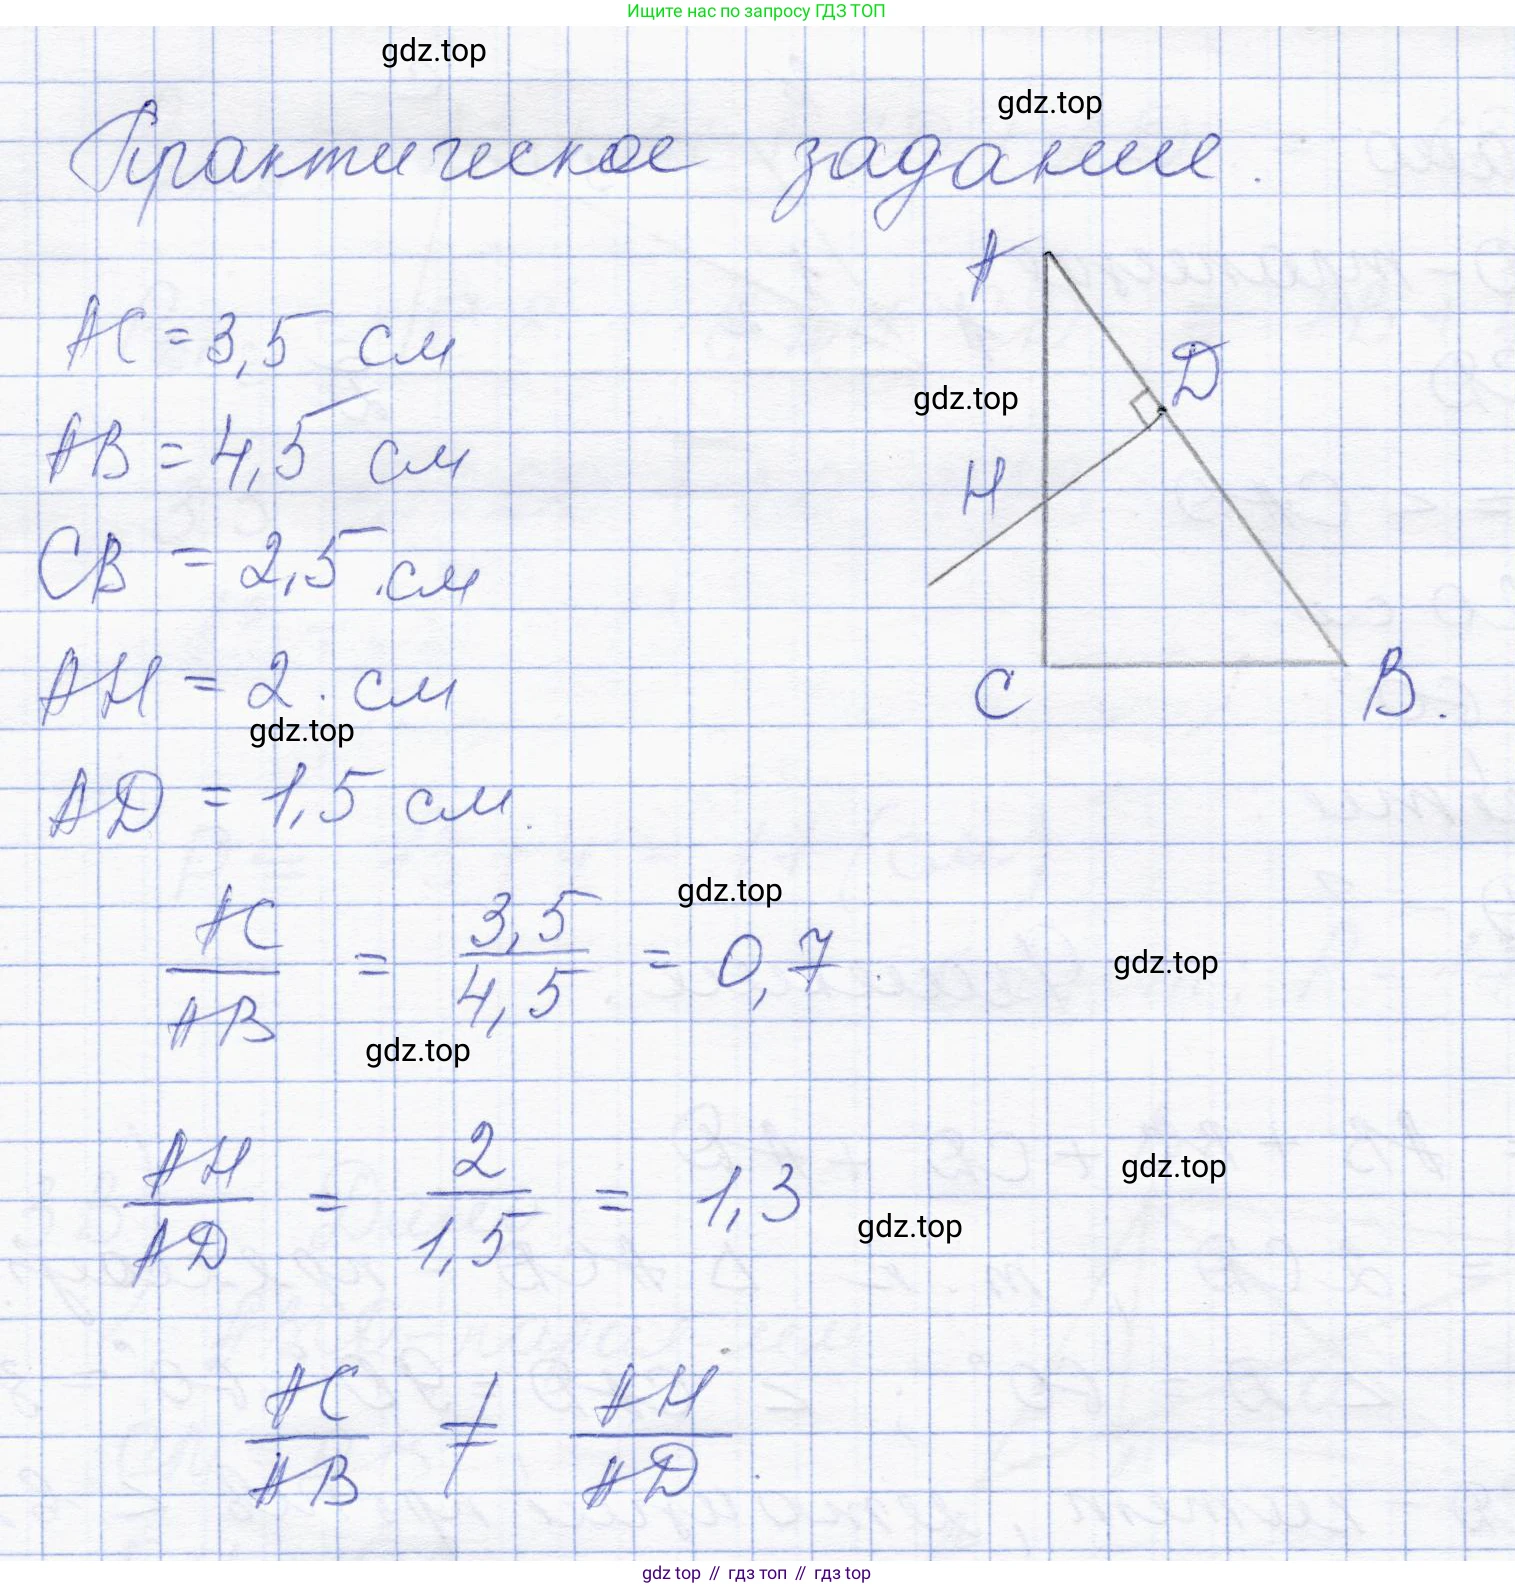 Ищите нас по запросу ГДЗ ТОП
gdz.top
gdz.top
Практическое задание.
A
AC = 3,5 см
D
gdz.top
AB = 4,5 см
H
CB = 2,5 см
AH = 2 см
C
B.
gdz.top
AD = 1,5 см.
gdz.top
AC/AB = 3,5/4,5 = 0,7
gdz.top
gdz.top
AH/AD = 2/1,5 = 1,3
gdz.top
gdz.top
AC/AB ≠ AH/AD.
gdz.top // гдз топ // гдз top